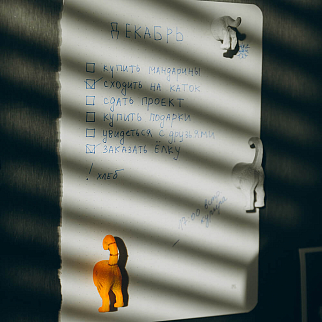 ДЕКАБРЬ
купить мандарины
сходить на каток
сдать проект
купить подарки
увидеться с друзьями
заказать ёлку
! хлеб